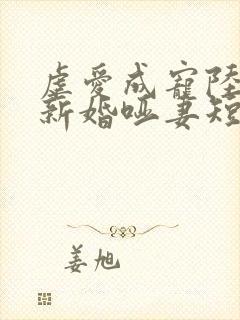 虐爱成宠陆
新婚哑妻短
姜旭